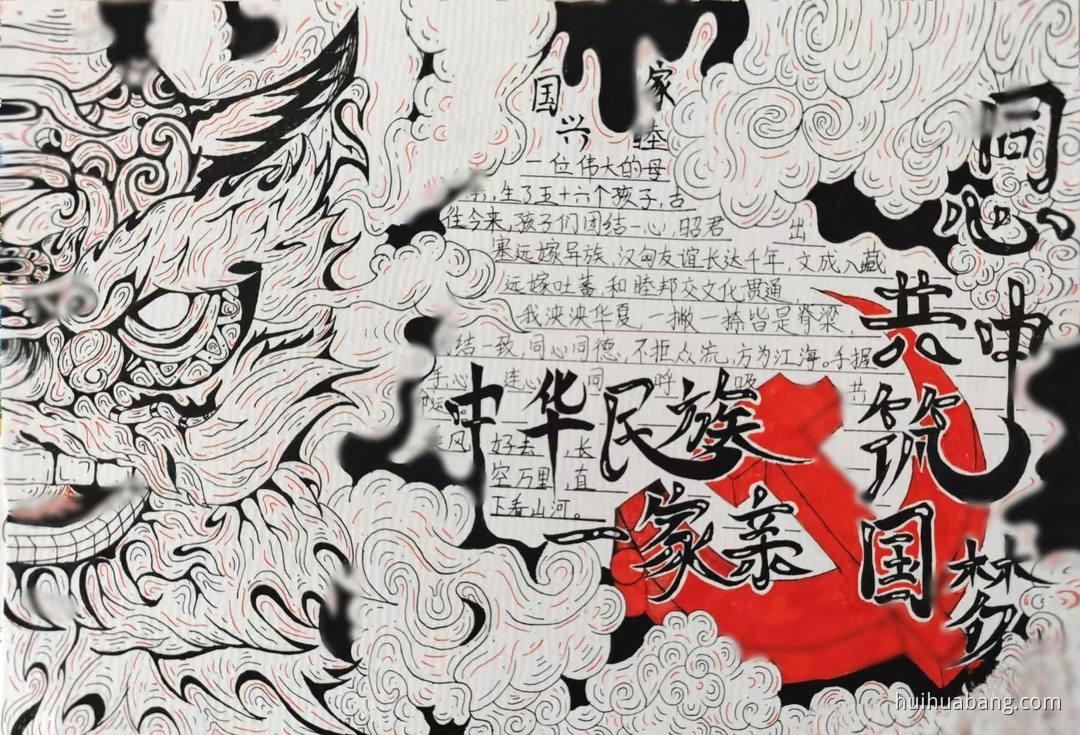 国 家
兴 睦
一位伟大的母
生了五十六个孩子,古
往今来,孩子们团结一心,昭君 出
塞远嫁异族,汉匈友谊长达千年,文成入藏
远嫁吐蕃,和睦邦交文化贯通
我泱泱华夏,一撇一捺皆是脊梁,
结一致,同心同德,不拒众流,方为江海。手握
手心 连心 同 呼 吸 共
风 好去 ,长
空万里,直
下看山河。
中华民族
一家亲
同心
共筑
中国梦
huihuabang.com